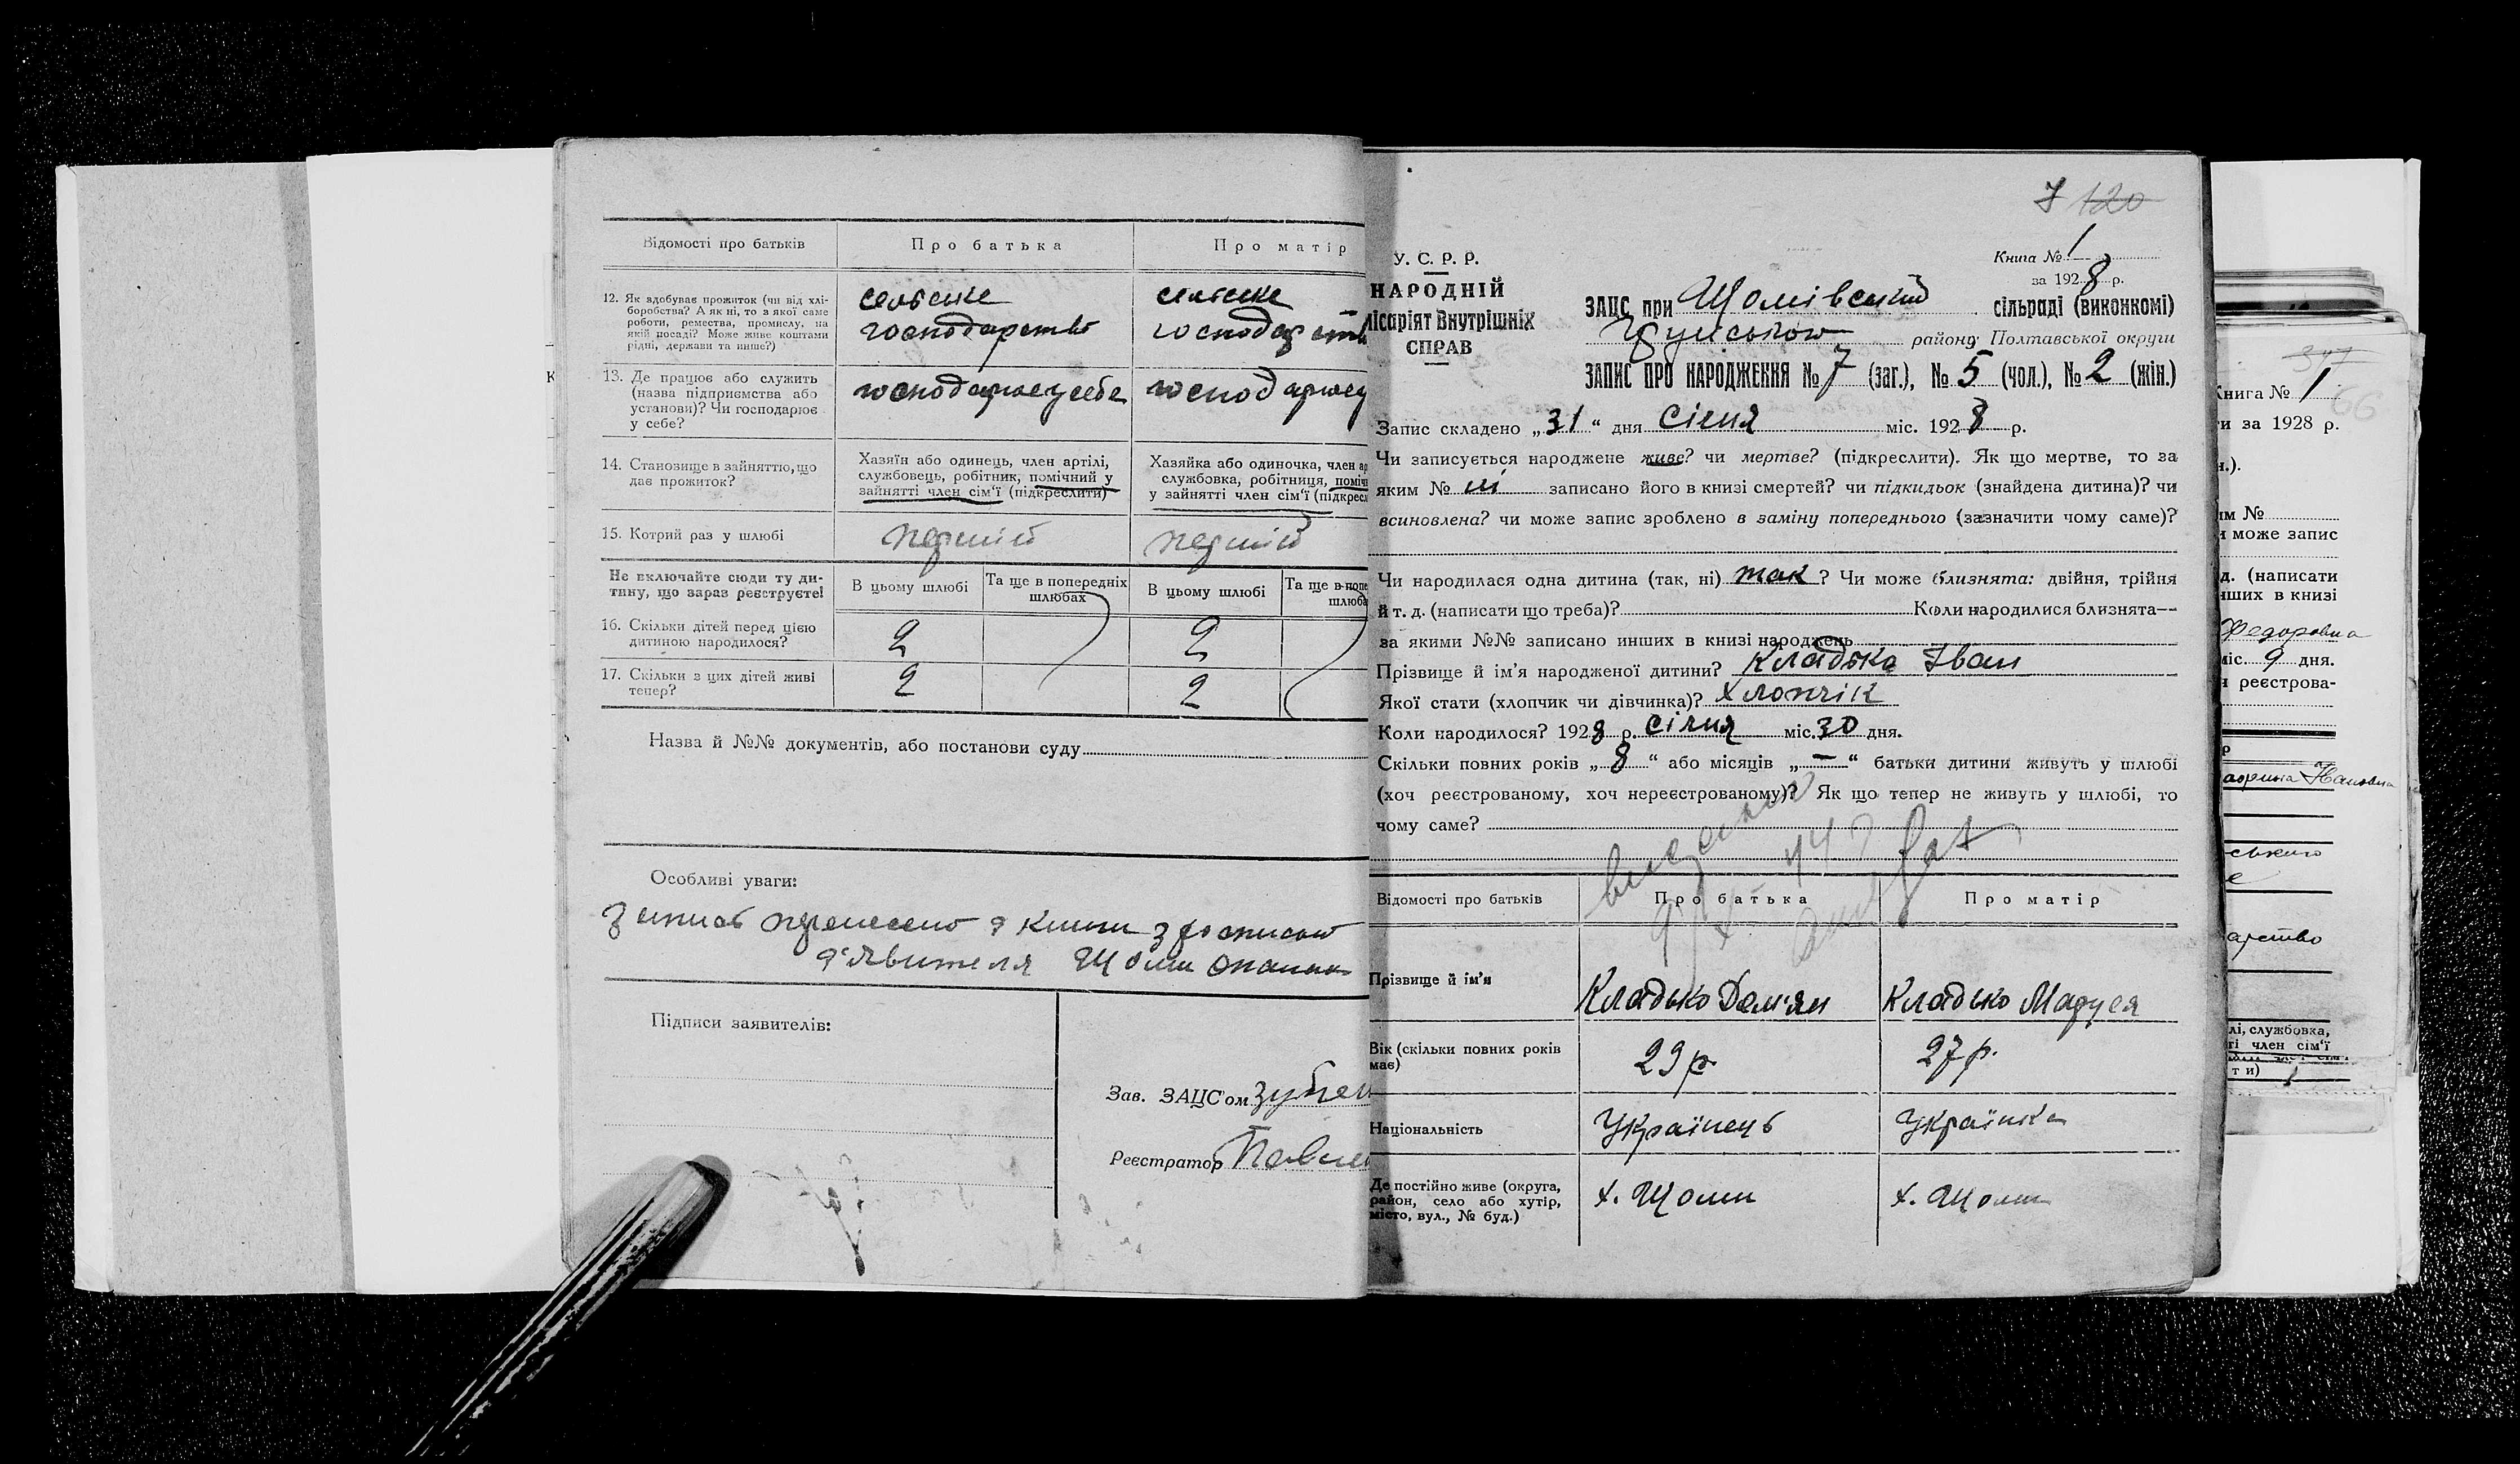 Відомості про батьків
Про батька
Про матір
12. Як здобуває прожиток (чи від хлі-
боробства? А як ні, то з якої саме
роботи, ремества, промислу, на
якій посаді? Може живе коштами
рідні, держави та инше?)
сельське
господарство
сельське
господарств
13. Де працює або служить
(назва підприємства або
установи)? Чи господарює
у себе?
господарює у себе
господарює у
14. Становище в зайняттю, що
дає прожиток?
Хазяїн або одинець, член артілі,
службовець, робітник, помічний у
зайнятті член сім'ї (підкреслити)
Хазяйка або одиночка, член ар
службовка, робітниця, поміч
у зайнятті член сім'ї (підкресл
15. Котрий раз у шлюбі
перший
перший
Не включайте сюди ту ди-
тину, що зараз реєструєте!
В цьому шлюбі
Та ще в попередніх
шлюбах
В цьому шлюбі
Та ще в попе
шлюба
16. Скільки дітей перед цією
дитиною народилося?
2
2
17. Скільки з цих дітей живі
тепер?
2
2
Назва й №№ документів, або постанови суду
Особливі уваги:
перенесено з книги з росписом
з'явителя Щоми
Підписи заявителів:
Зав. ЗАЦС'ом Зубен
Реєстратор
7 120
У. С. Р. Р.
НАРОДНІЙ
місаріят Внутрішніх
СПРАВ
Книга № 1
за 1928 р.
ЗАЦС при Щомівський сільраді (виконкомі)
району Полтавської округи
ЗАПИС ПРО НАРОДЖЕННЯ № 7 (заг.), № 5 (чол.), № 2 (жін.)
Запис складено „31“ дня січня міс. 1928 р.
Чи записується народжене живе? чи мертве? (підкреслити). Як що мертве, то за
яким № ні записано його в книзі смертей? чи підкидьок (знайдена дитина)? чи
всиновлена? чи може запис зроблено в заміну попереднього (зазначити чому саме)?
Чи народилася одна дитина (так, ні) так ? Чи може близнята: двійня, трійня
й т. д. (написати що треба)? Коли народилися близнята—
за якими №№ записано инших в книзі народжень
Прізвище й ім'я народженої дитини? Кладько Іван
Якої стати (хлопчик чи дівчинка)? Хлопчік
Коли народилося? 1928 р. січня міс. 30 дня.
Скільки повних років „8“ або місяців „—“ батьки дитини живуть у шлюбі
(хоч реєстрованому, хоч нереєстрованому)? Як що тепер не живуть у шлюбі, то
чому саме?
Відомості про батьків
Про батька
Про матір
Прізвище й ім'я
Кладько Дем'ян
Кладько Маруся
Вік (скільки повних років
має)
29 р.
27 р.
Національність
Українець
Українка
Де постійно живе (округа,
район, село або хутір,
місто, вул., № буд.)
х. Щоми
х. Щоми
Книга № 1
66
и за 1928 р.
н.).
им №
и може запис
д. (написати
нших в книзі
Федоровна
міс. 9 дня.
и реєстрова-
р
Івановна
ського
е
арство
лі, службовка,
ті член сім'ї
ти)